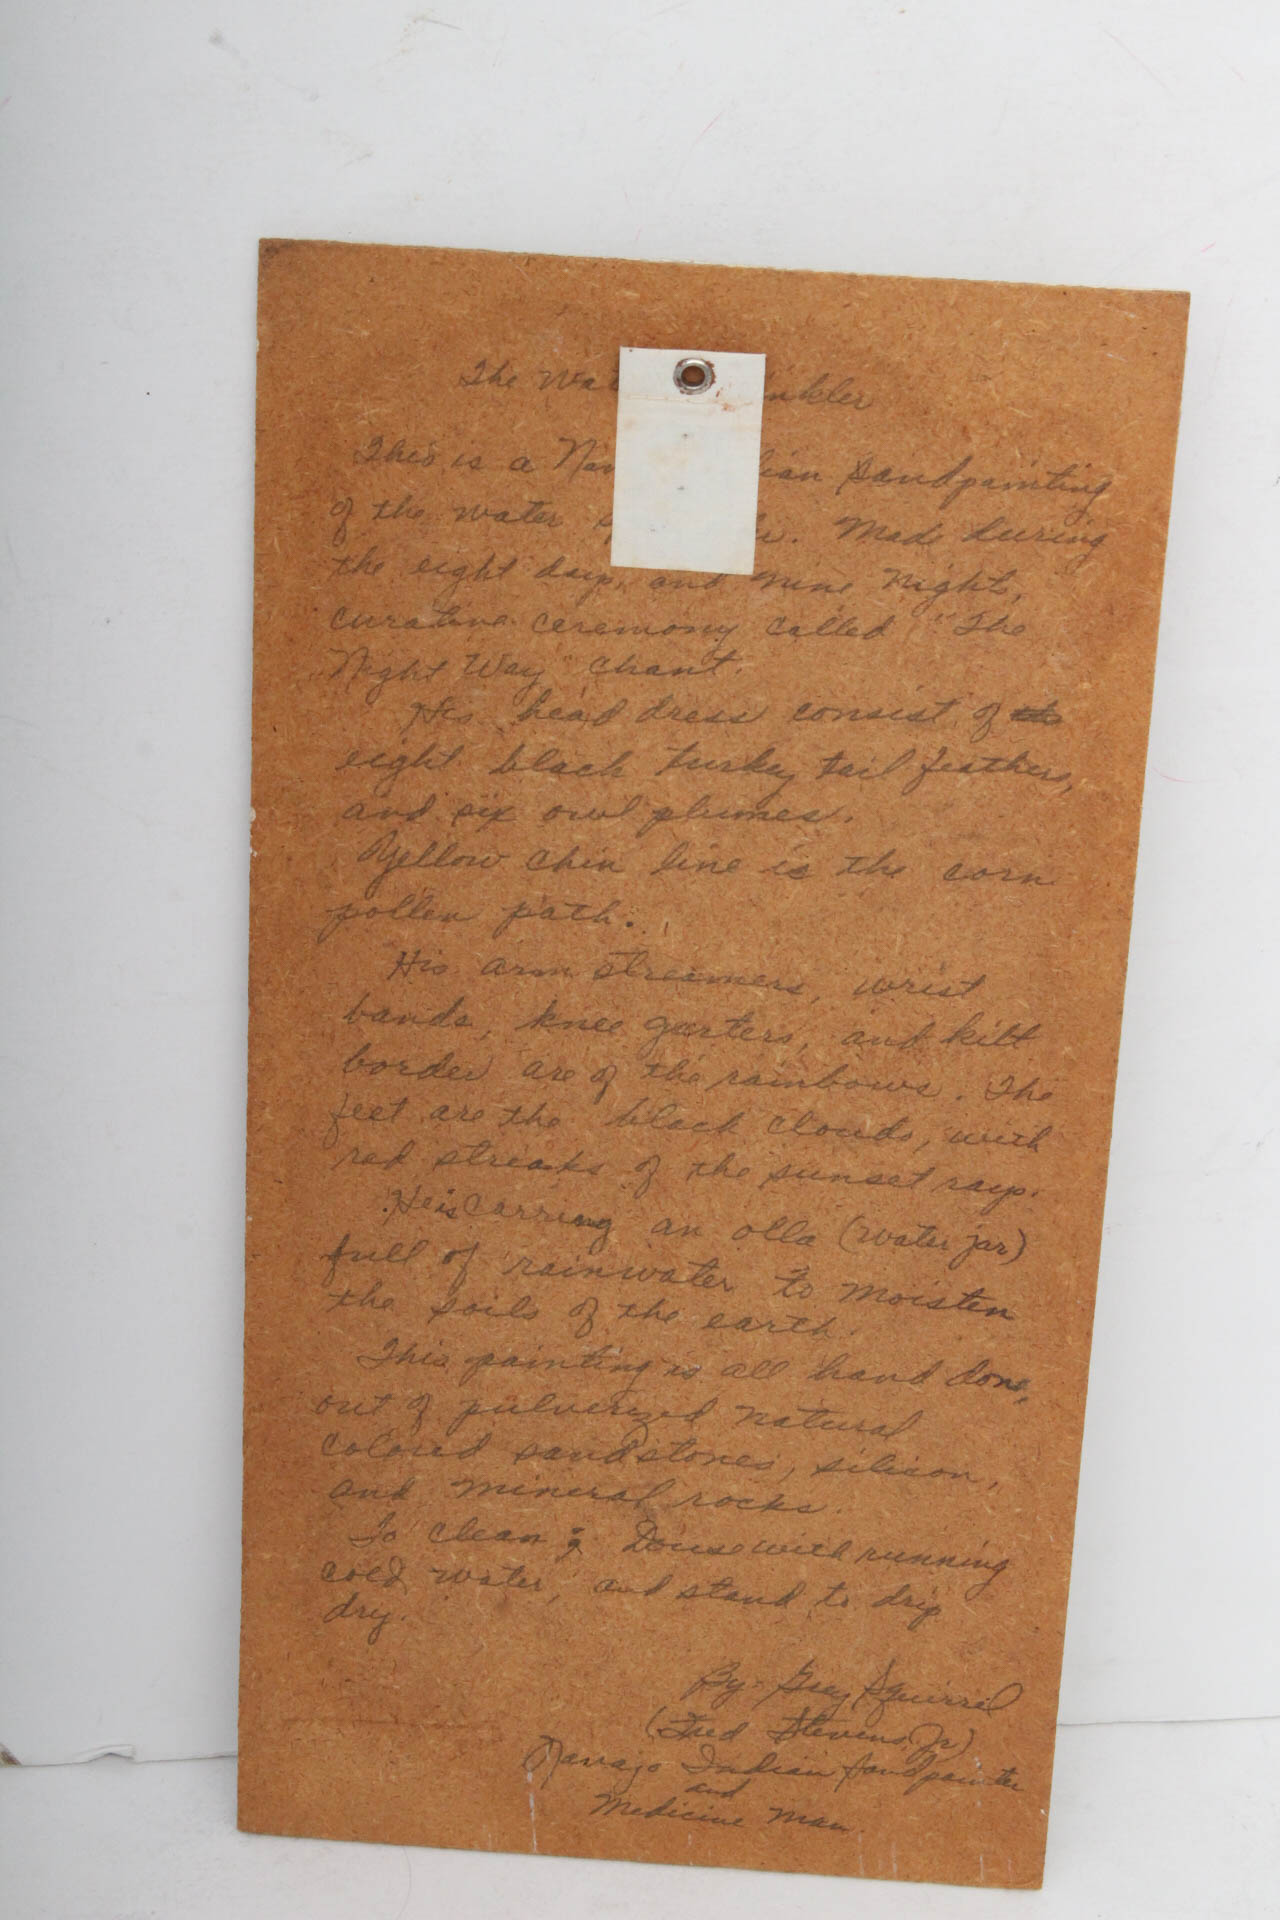 The Wa nkler
This is a Na ian Sandpainting
of the water s r. Made during
the eight days, and nine night,
curative ceremony called "The
Night Way" chant.
His head dress consist of the
eight black turkey tail feathers,
and six owl plumes.
Yellow chin line is the corn
pollen path.
His arm streamers, wrist
bands, knee garters, and kilt
border are of the rainbows. The
feet are the black clouds, with
red streaks of the sunset rays.
He is carring an olla (water jar)
full of rainwater to moisten
the soils of the earth.
This painting is all hand done,
out of pulverized natural
colored sandstones, silicon,
and mineral rocks.
To clean; Douse with running
cold water, and stand to drip
dry.
By- Grey Squirrel
(Fred Stevens, Jr)
Navajo Indian Sandpainter
and
Medicine Man.